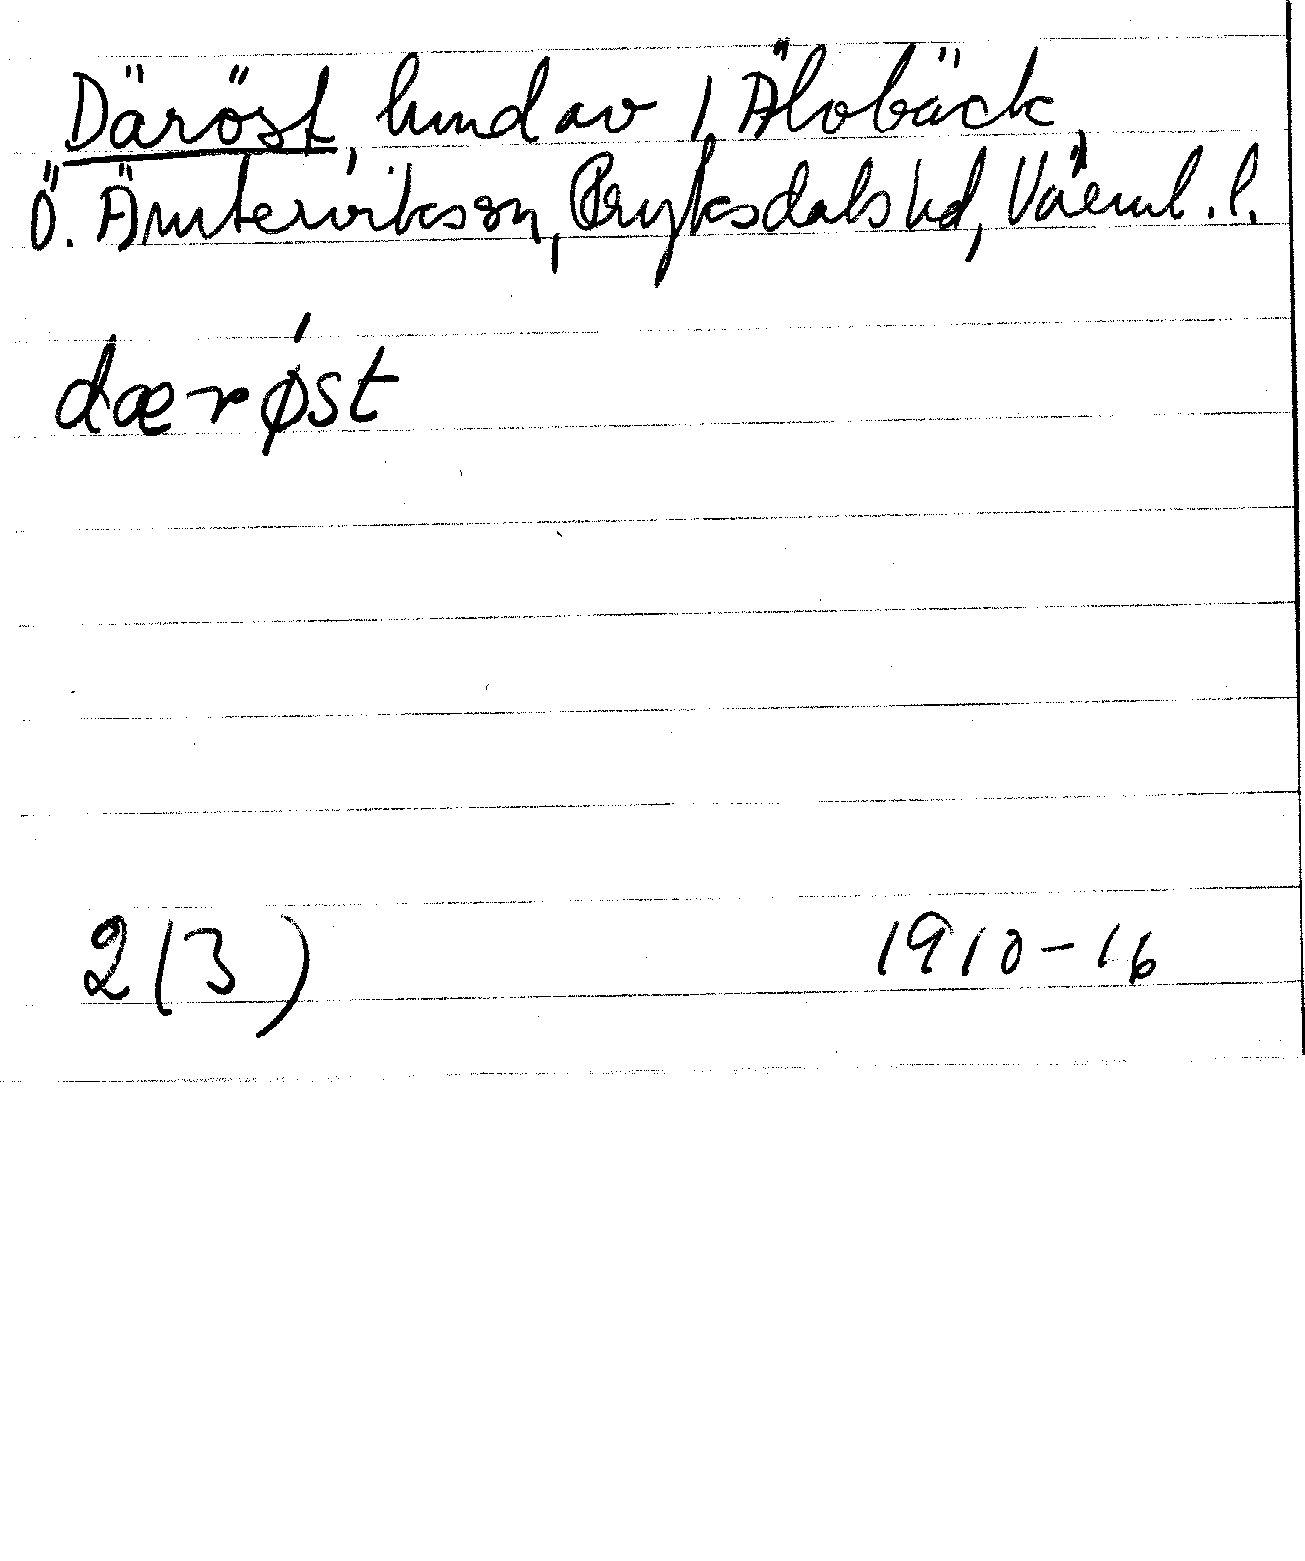 Däröst, hmd av 1, Älvbäck,
Ö. Ämterviks sn, Fryksdals hd, Värml. l.
dærøst
2(3) 1910-16